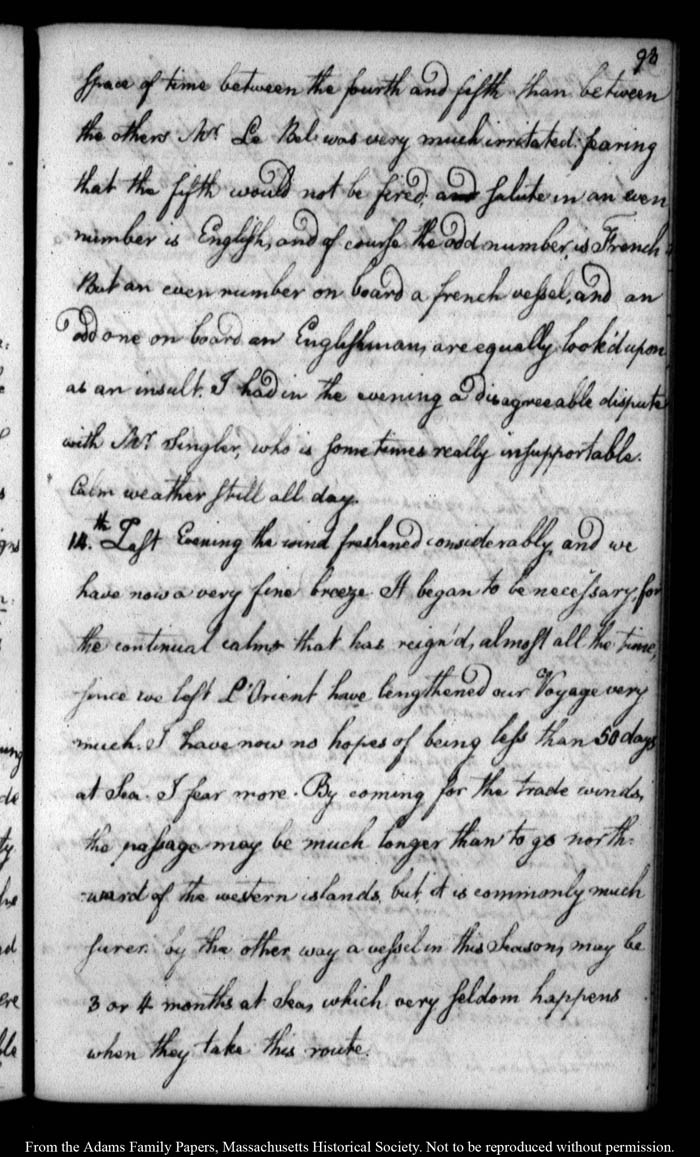 98
space of time between the fourth and fifth than between
the others Mr. Le Bel was very much irritated: fearing
that the fifth would not be fired, and salute in an even
number is English, and of course the odd number, is French
But an even number on board a french vessel, and an
odd one on board an Englishman, are equally look'd upon
as an insult. I had in the evening a disagreeable dispute
with Mr. Singler, who is sometimes really insupportable.
Calm weather still all day.
14.th Last Evening the wind freshened considerably, and we
have now a very fine breeze. It began to be necessary, for
the continual calms that has reign'd, almost all the time,
since we left L'Orient have lengthened our Voyage very
much. I have now no hopes of being less than 50 days
at Sea. I fear more. By coming for the trade winds,
the passage may be much longer than to go north-
-ward of the western islands, but it is commonly much
surer: by the other way a vessel in this Season, may be
3 or 4 months at Sea, which very seldom happens
when they take this route.
From the Adams Family Papers, Massachusetts Historical Society. Not to be reproduced without permission.